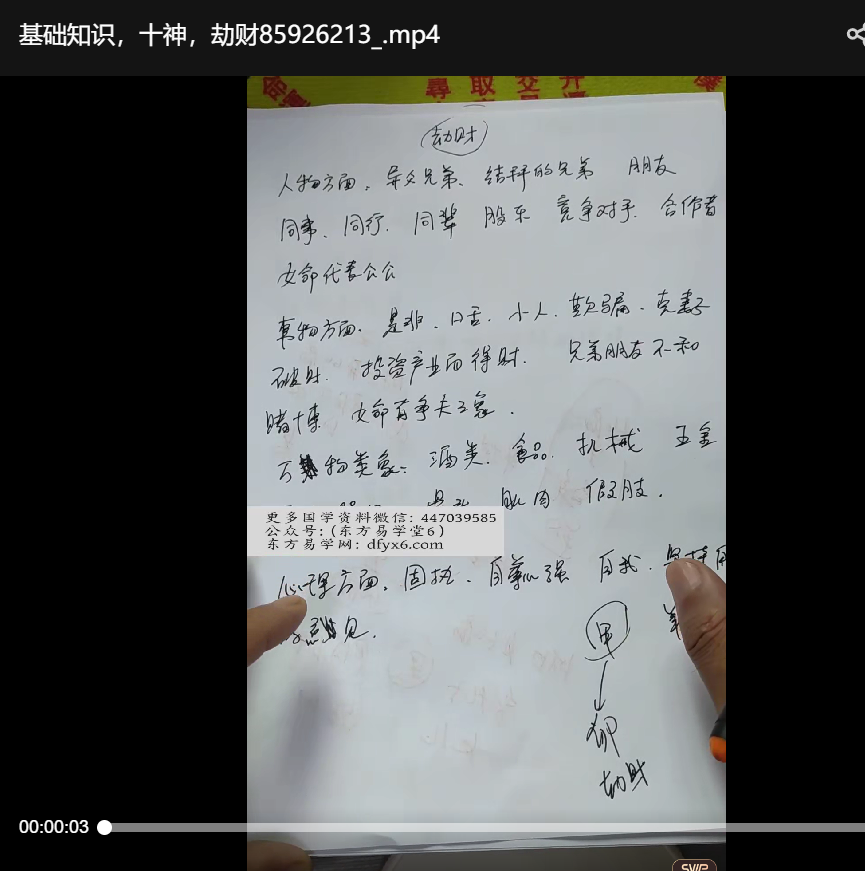 基础知识，十神，劫财85926213_.mp4
尋 取 交 开
劫财
人物方面。异父兄弟、结拜的兄弟 朋友
同事、同行. 同辈 股东 竞争对手. 合作者
女命代表公公
事物方面. 是非、口舌. 小人. 欺骗. 克妻子
破财. 投资产业而得财. 兄弟朋友不和
赌博 女命有争夫之象.
万物类象: 酒类. 食品. 机械 五金
肌肉 假肢.
更多国学资料微信: 447039585
公众号:(东方易学堂6)
东方易学网: dfyx6.com
心理方面. 固执. 自尊心强 自我.
意见.
甲
卯
劫财
00:00:03
SVIP